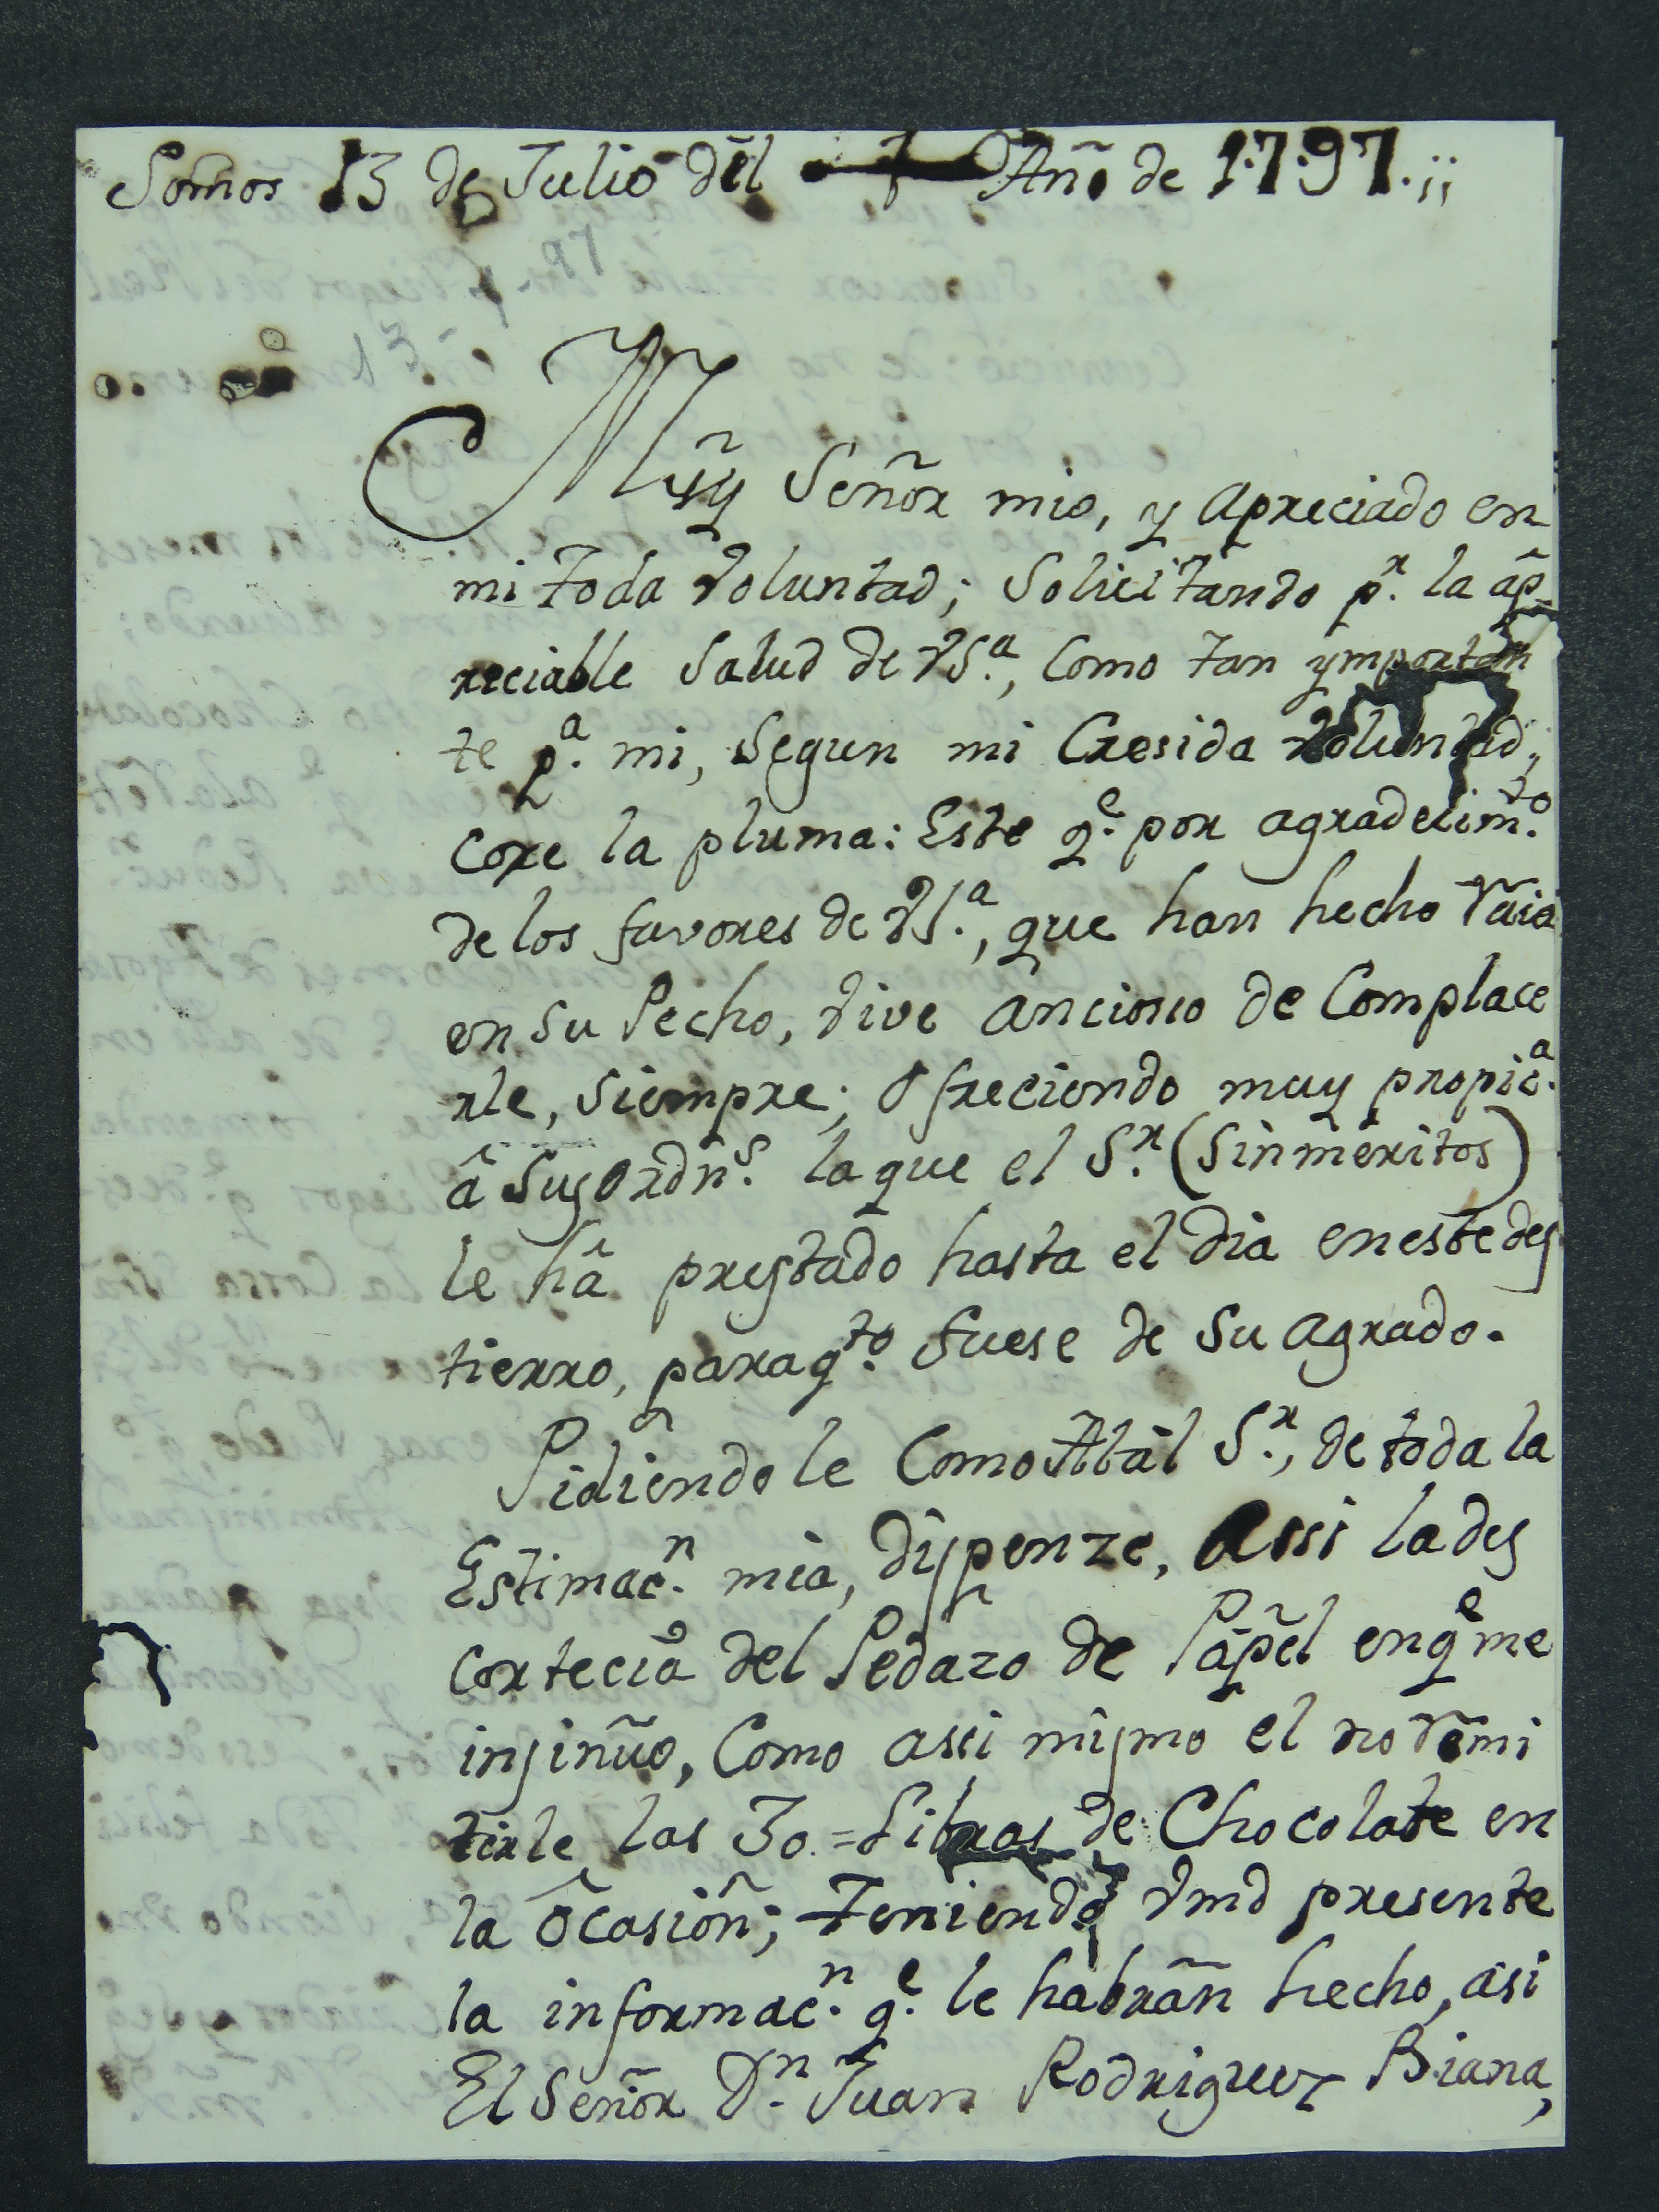 Somos 13 de Julio del Año de 1797.;;
97
13
Muy Señor mio, y apreciado en
mi toda voluntad; Solicitando p.r la ap-
reciable Salud de VS.a, Como tan ymportan
te p.a mi, Segun mi Cresida voluntad;
Coxe la pluma: Este q.e por agradecim.to
de los favores de VS.a, que han hecho raiã
en su Pecho, vive ancioso de Complace
rle, Siempre; Ofreciendo muy propic.a
â Sus Ordn.s la que el S.r (Sinmeritos)
le hâ prestado hasta el dia eneste des
tierro, paraq.to fuese de Su agrado.
Pidiendole Como Atal S.r, de toda la
Estimac.n mia, dispenze, assi lades
cortecia del Pedazo de Papel enq.e me
insinũo, Como assi mismo el no remi
tirle las 30.= Libras de Chocolate en
la Ocasion; Teniendo Vmd presente
la informac.n q.e le habrãn hecho, asi
El Señor D.n Juan Rodriguez Biana,